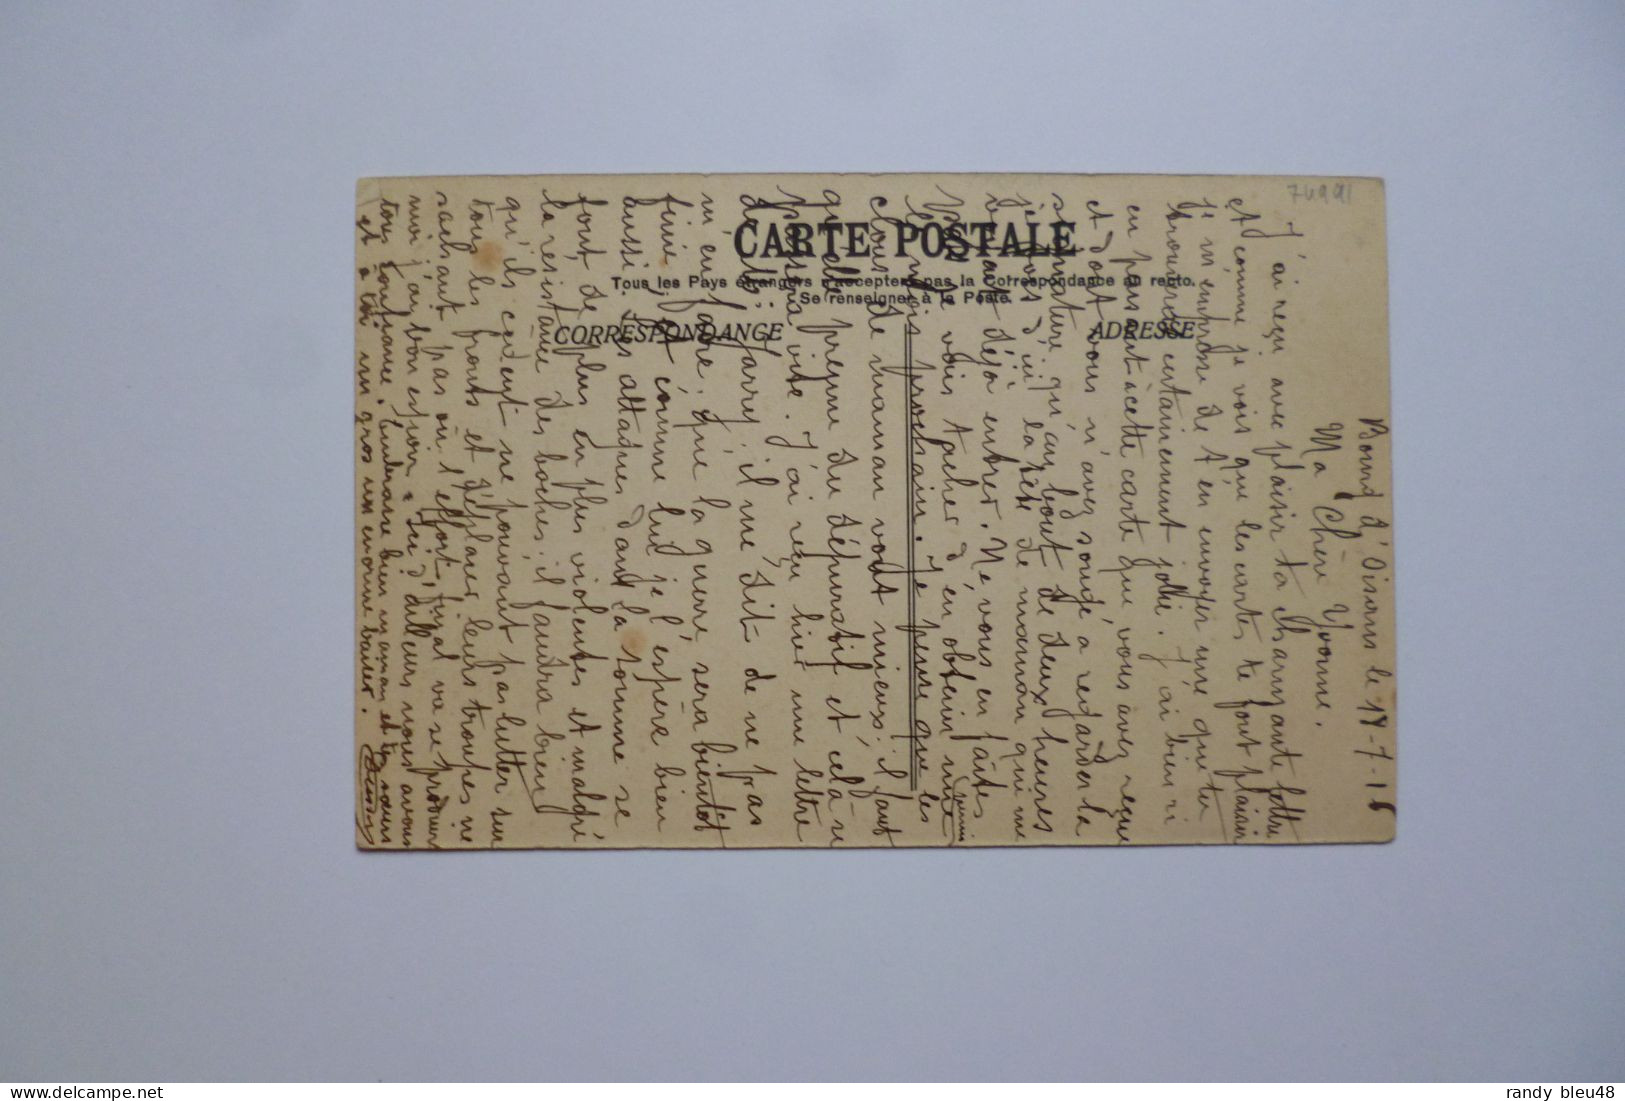 74991
CARTE POSTALE
Tous les Pays étrangers n'acceptent pas la Correspondance au recto.
Se renseigner à la Poste.
CORRESPONDANCE
ADRESSE
Bourg d'Oisans le 18-7-16
Ma Chère Yvonne.
J'ai reçu avec plaisir ta charmante lettre
et comme je vois que les cartes te font plaisir
je m'empresse de t'en envoyer une que tu
trouveras certainement jolie. J'ai bien ri
en pensant à cette carte que vous avez reçue
et dont vous n'avez songé à regarder la
signature qu'au bout de deux heures
je vois d'ici la tête de maman qui me
voyait déjà entrer. Ne vous en faites
pas je vais tacher d'en obtenir une
le mois prochain. Je pense que les
clous de maman vont mieux; il faut
qu'elle prenne du dépuratif et cela se
passera vite. J'ai reçu hier une lettre
de Mr Harry; il me dit de ne pas
m'en faire; que la guerre sera bientôt
finie; et comme lui je l'espère bien
aussi. Les attaques dans la Somme se
font de plus en plus violentes et malgré
la résistance des boches; il faudra bien
qu'ils cèdent ne pouvant pas lutter sur
tous les fronts et déplacer leurs troupes ne
sachant pas où l'effort final va se produire
moi j'ai bon espoir; d'ailleurs nous avons
tous confiance. Embrasse bien maman et tes sœurs
et à toi un gros un énorme baiser.
randy bleu48